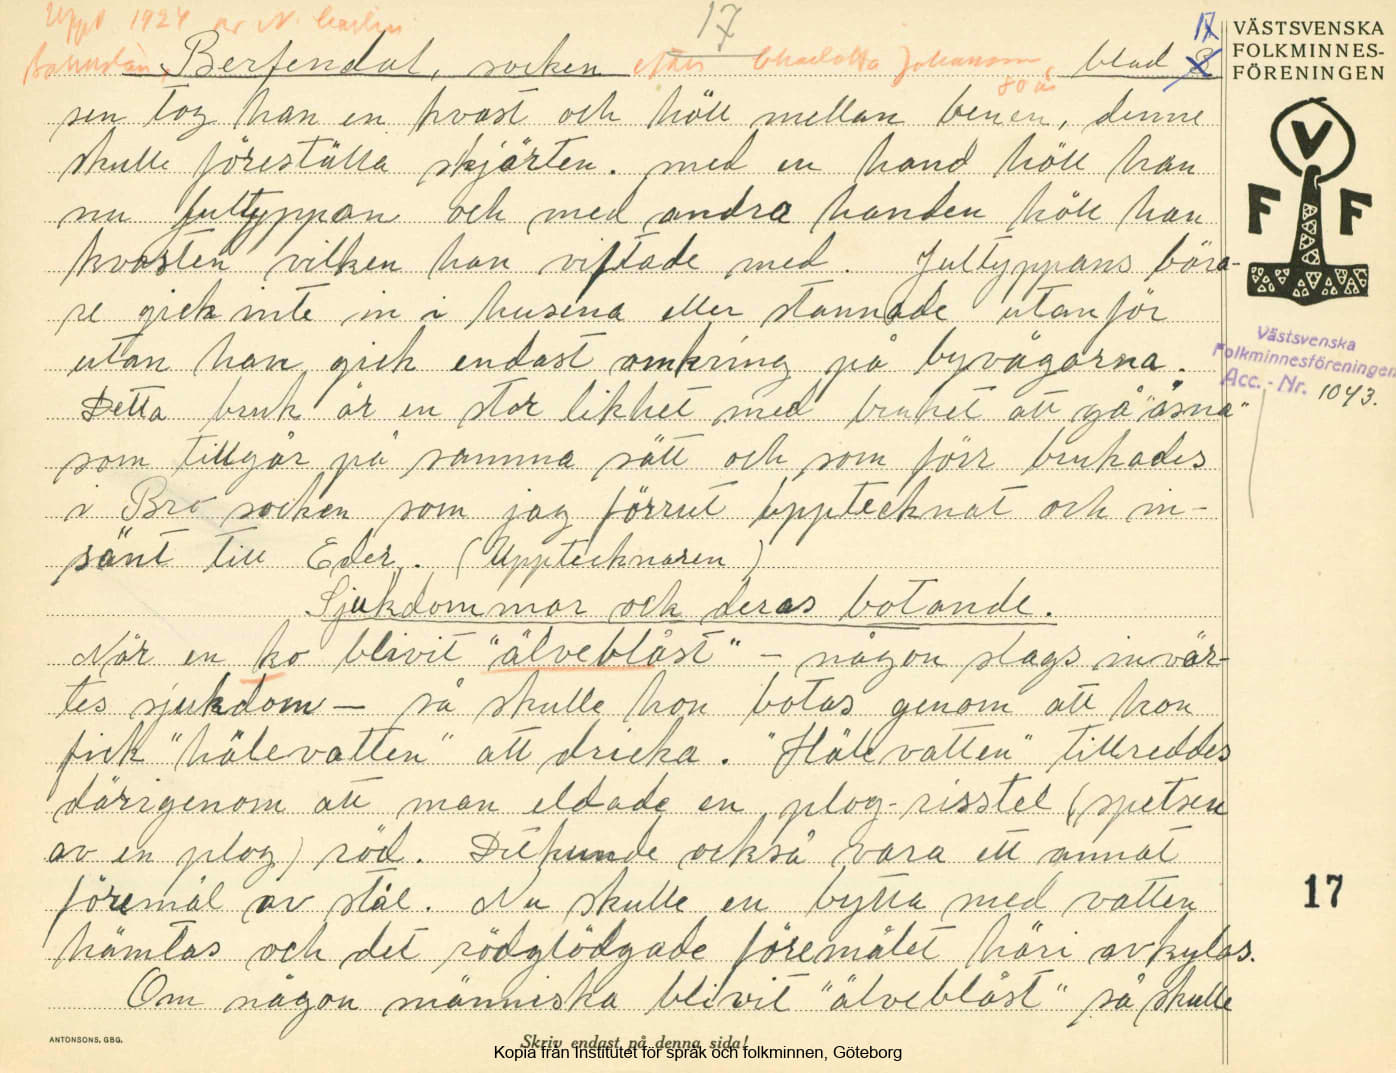 Uppt 1924 av N.
17
17
Bohuslän,
Berfendal, socken
efter Charlotta Johansson
80 år
blad 8
VÄSTSVENSKA
FOLKMINNES-
FÖRENINGEN
V
F F
sen tog han en kvast och höll mellan benen, denne
skulle föreställa skjärten. med en hand höll han
nu jultyppan och med andra handen höll han
kvasten vilken han viftade med. Jultyppans bära-
re gick inte in i husena eller stannade utanför
utan han gick endast omkring på byvägarna.
Detta bruk är en stor likhet med bruket att gå "åsna"
som tillgår på samma sätt och som förr brukades
i Bro socken som jag förrut upptecknat och in-
sänt till Eder. (Upptecknaren)
Västsvenska
Folkminnesföreningen
Acc.-Nr. 1043.
Sjukdommar och deras botande.
När en ko blivit "älveblåst" – någon slags invär-
tes sjukdom – så skulle hon botas genom att hon
fick "hälevatten" att dricka. "Hälevatten" tillreddes
därigenom att man eldade en plog-risstel (spetsen
av en plog) röd. Det kunde också vara ett annat
föremål av stål. Nu skulle en bytta med vatten
hämtas och det rödglödgade föremålet häri avkylas.
Om någon människa blivit "älveblåst" så skulle
17
ANTONSONS, GBG.
Skriv endast på denna sida!
Kopia från Institutet för språk och folkminnen, Göteborg